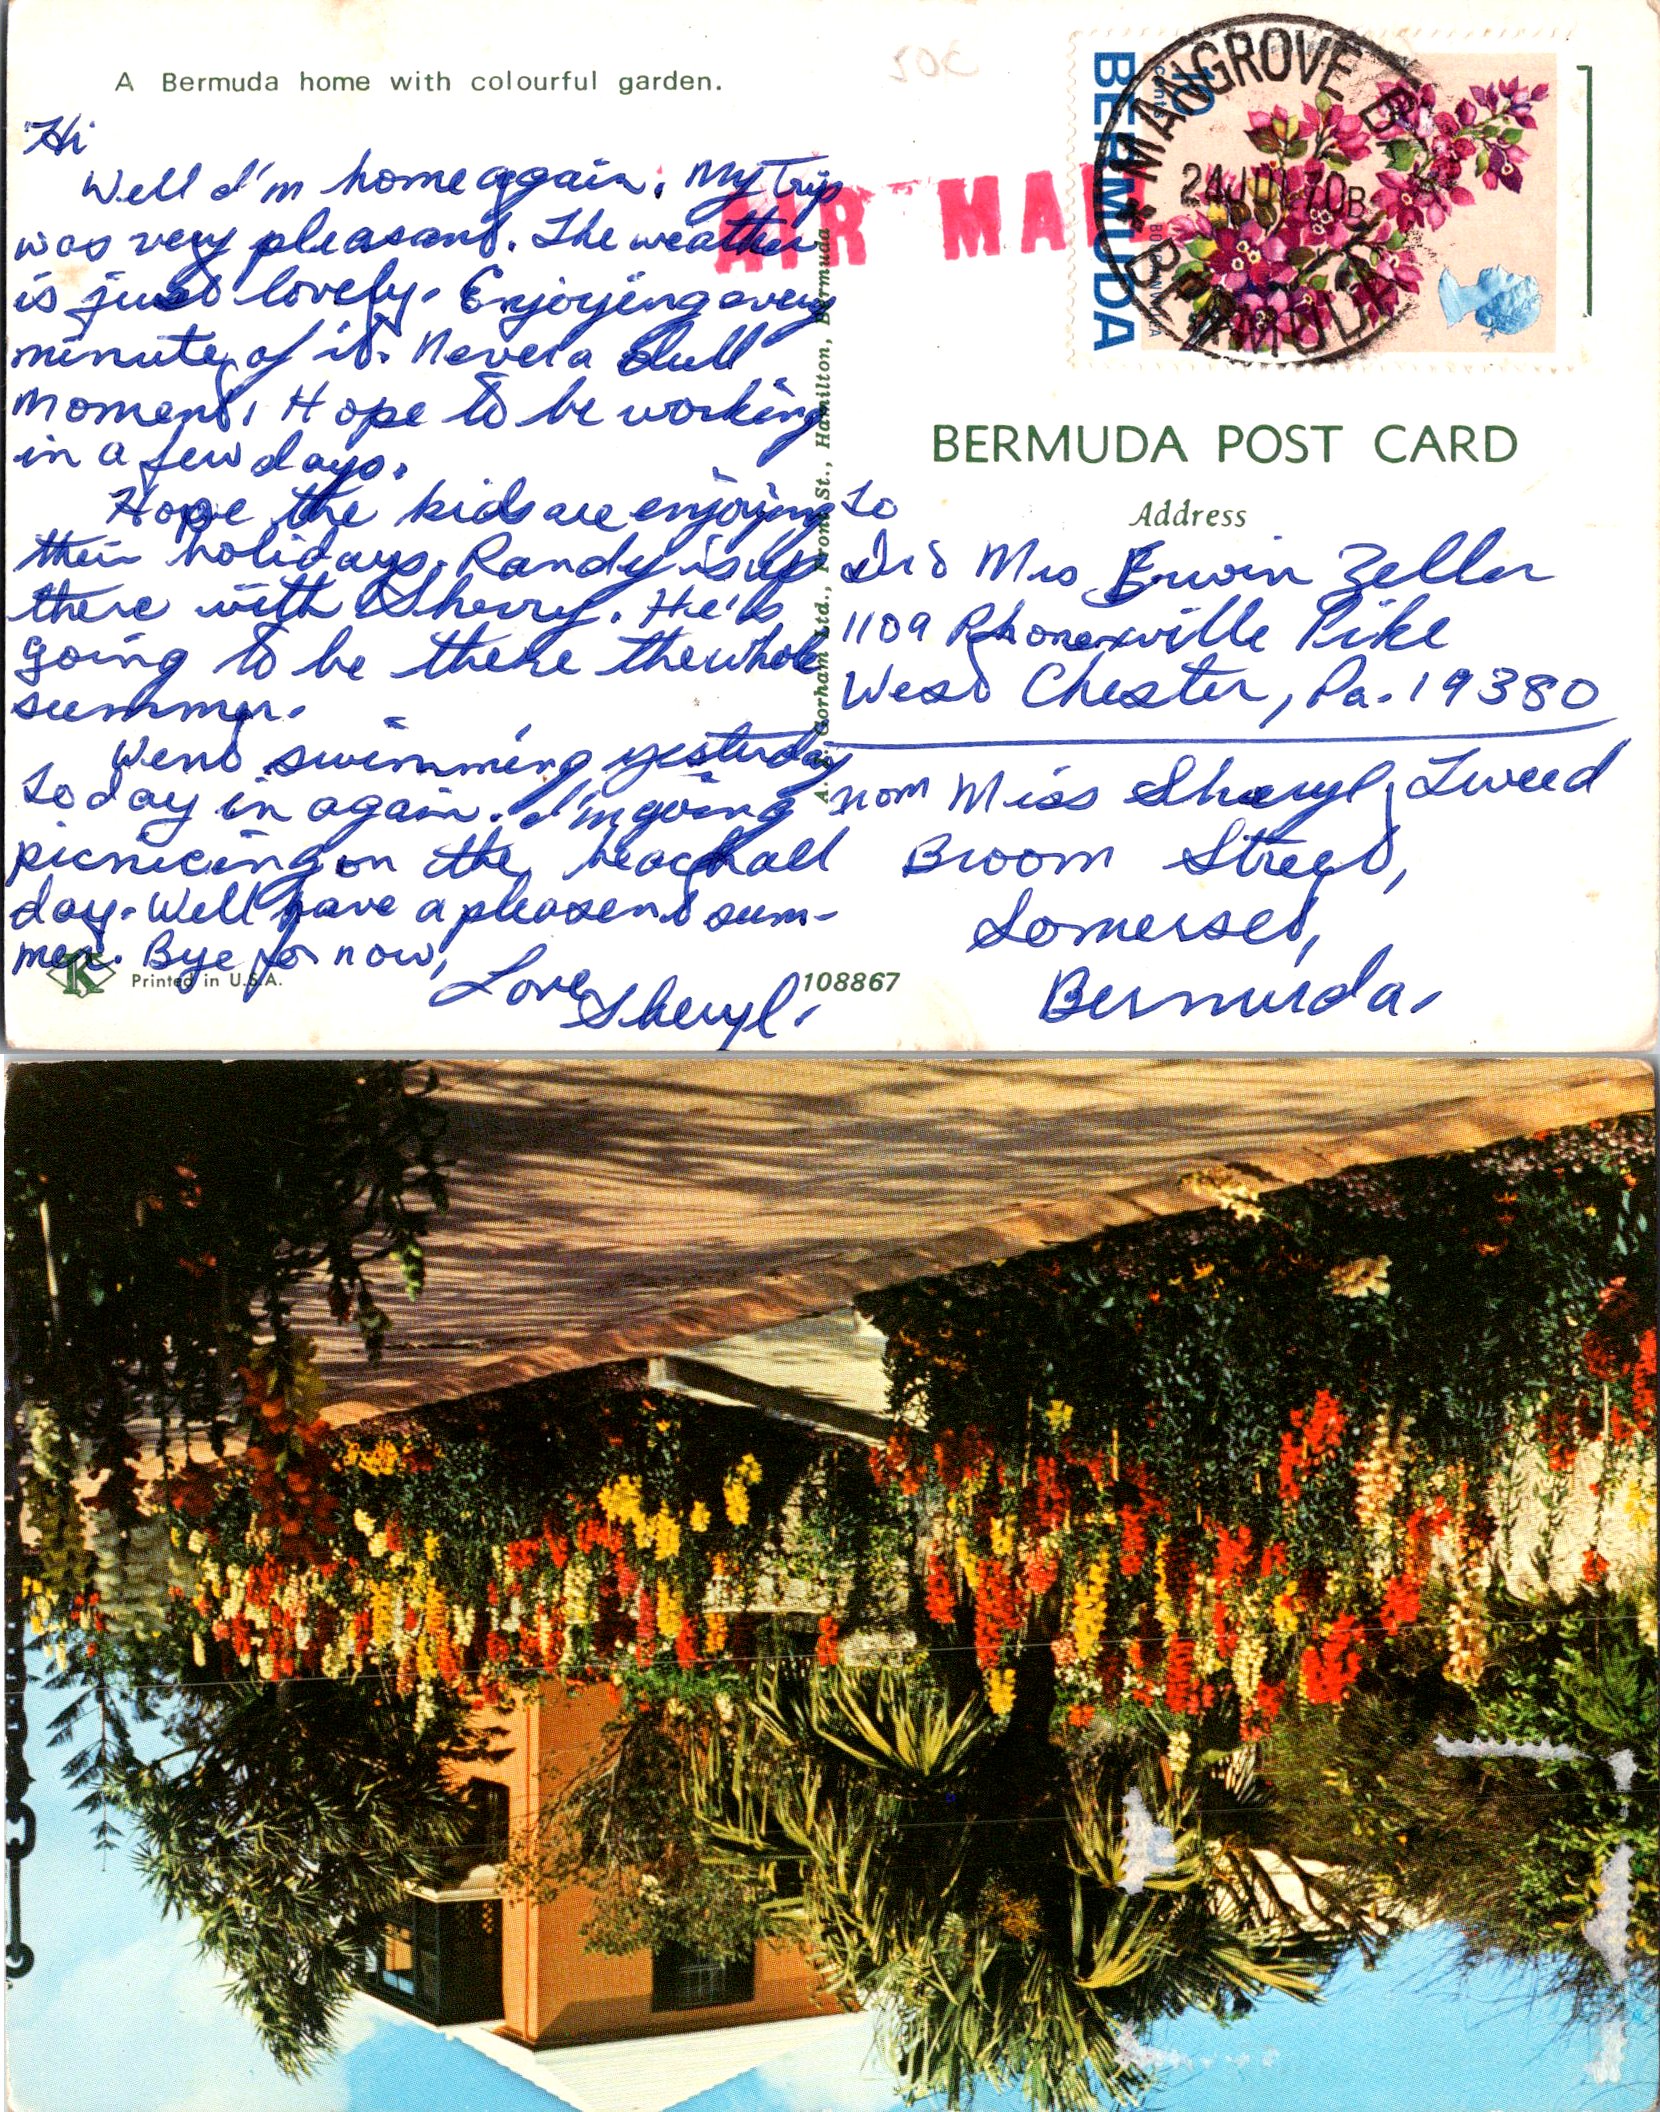 A Bermuda home with colourful garden.
Hi
Well I'm home again. My Trip
was very pleasant. The weather
is just lovely. Enjoying every
minute of it. Never a dull
Moment. Hope to be working
in a few days.
Hope the kids are enjoying
their holidays. Randy is up
there with Sherry. He's
going to be there the whole
summer.
Went swimming yesterday
Today in again. I'm going
picnicing on the beach all
day. Well have a pleasent sum-
mer. Bye for now,
Love
Sheryl.
K
Printed in U.S.A.
108867
A. J. Gorham Ltd., Front St., Hamilton, Bermuda
AIR MAIL
10 cents
BERMUDA
MANGROVE B
24 JUL 70 B
BERMUDA
BERMUDA POST CARD
Address
To
Mrs Erwin Zeller
1109 Phonexville Pike
West Chester, Pa. 19380
From Miss Sheryl Tweed
Broom Street,
Somerset,
Bermuda.